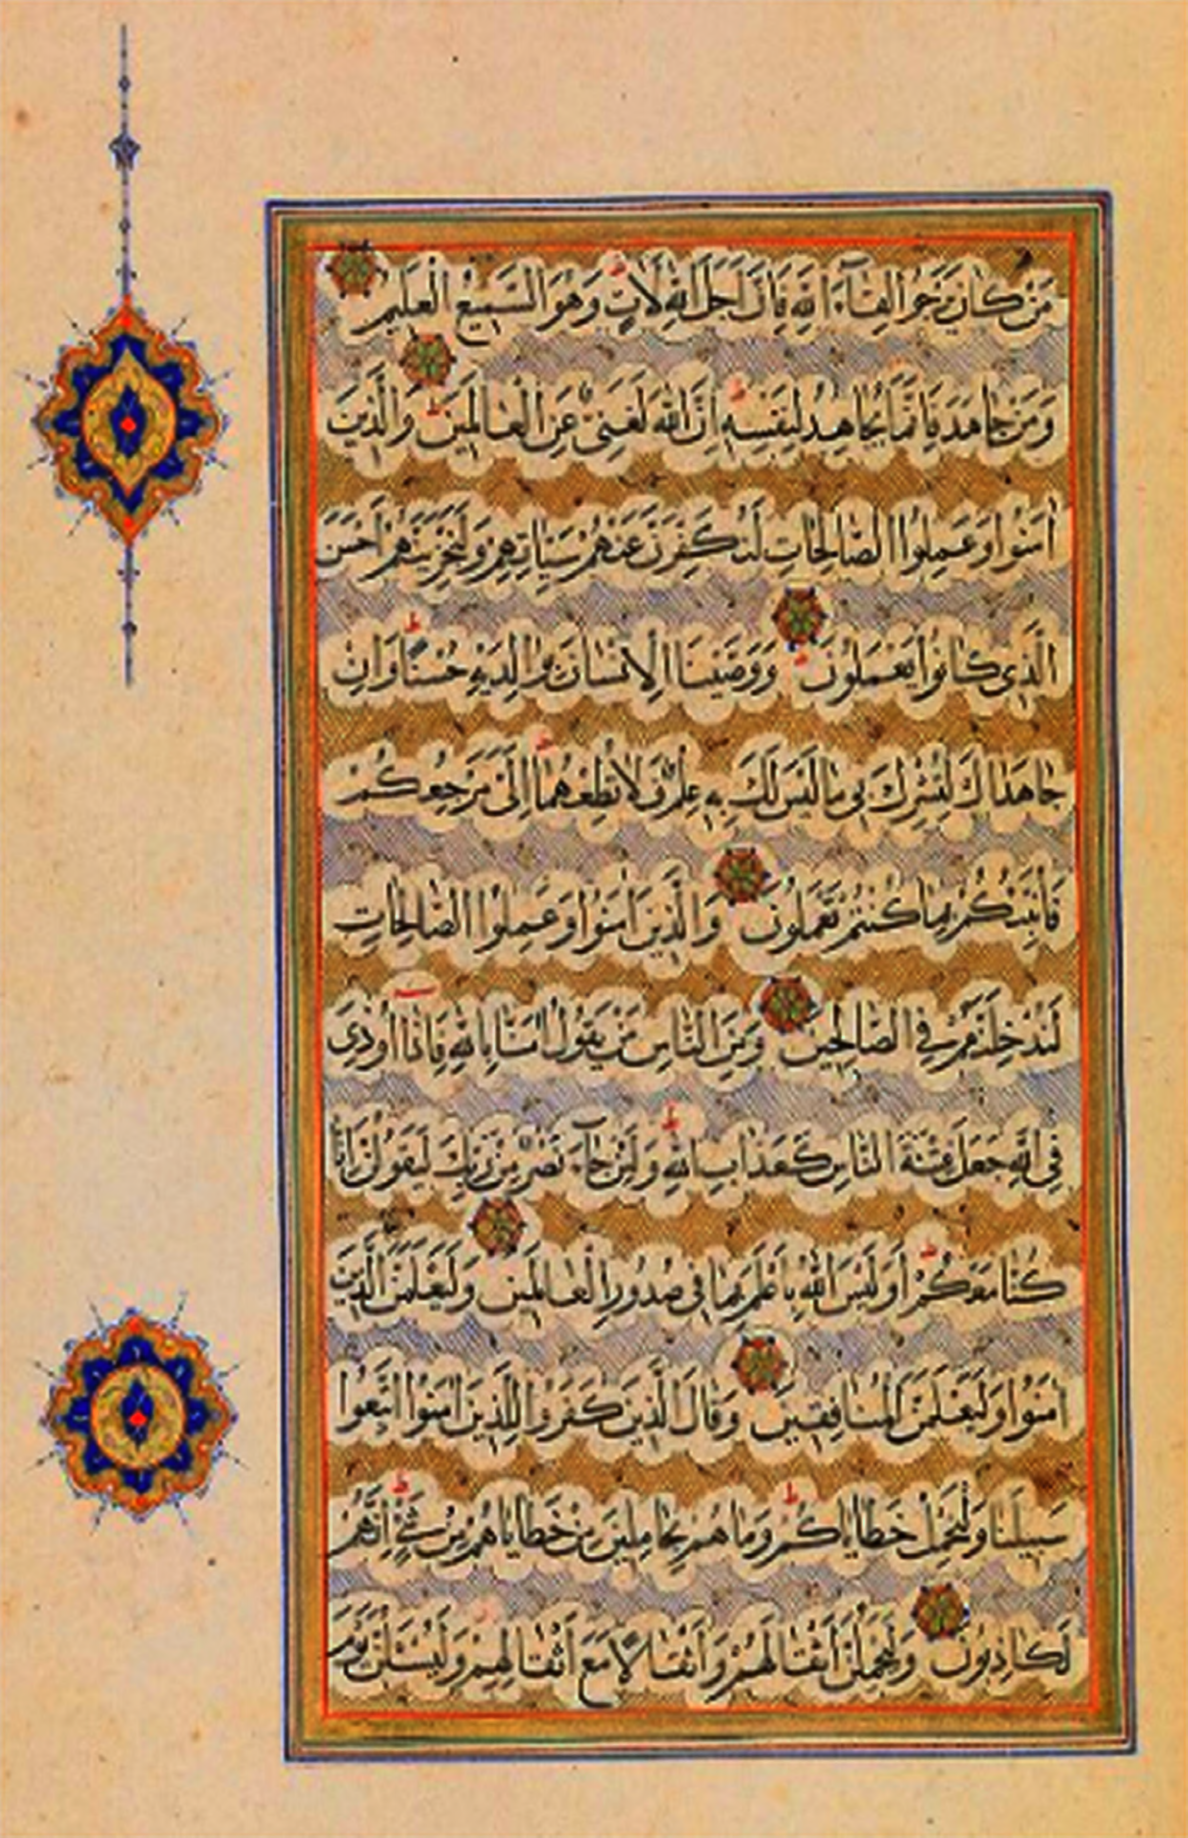 مَنْ كَانَ يَرْجُوا لِقَآءَ اللّٰهِ فَاِنَّ اَجَلَ اللّٰهِ لَاٰتٍ وَهُوَ السَّمِيعُ الْعَلِيمُ
وَمَنْ جَاهَدَ فَاِنَّمَا يُجَاهِدُ لِنَفْسِهِ اِنَّ اللّٰهَ لَغَنِىٌّ عَنِ الْعَالَمِينَ وَالَّذِينَ
اٰمَنُوا وَعَمِلُوا الصَّالِحَاتِ لَنُكَفِّرَنَّ عَنْهُمْ سَيِّاٰتِهِمْ وَلَنَجْزِيَنَّهُمْ اَحْسَنَ
الَّذِى كَانُوا يَعْمَلُونَ وَوَصَّيْنَا الْاِنْسَانَ بِوَالِدَيْهِ حُسْنًا وَاِنْ
جَاهَدَاكَ لِتُشْرِكَ بِى مَا لَيْسَ لَكَ بِهِ عِلْمٌ فَلَا تُطِعْهُمَا اِلَىَّ مَرْجِعُكُمْ
فَاُنَبِّئُكُمْ بِمَا كُنْتُمْ تَعْمَلُونَ وَالَّذِينَ اٰمَنُوا وَعَمِلُوا الصَّالِحَاتِ
لَنُدْخِلَنَّهُمْ فِى الصَّالِحِينَ وَمِنَ النَّاسِ مَنْ يَقُولُ اٰمَنَّا بِاللّٰهِ فَاِذَا اُوذِىَ
فِى اللّٰهِ جَعَلَ فِتْنَةَ النَّاسِ كَعَذَابِ اللّٰهِ وَلَئِنْ جَآءَ نَصْرٌ مِنْ رَبِّكَ لَيَقُولُنَّ اِنَّا
كُنَّا مَعَكُمْ اَوَلَيْسَ اللّٰهُ بِاَعْلَمَ بِمَا فِى صُدُورِ الْعَالَمِينَ وَلَيَعْلَمَنَّ اللّٰهُ الَّذِينَ
اٰمَنُوا وَلَيَعْلَمَنَّ الْمُنَافِقِينَ وَقَالَ الَّذِينَ كَفَرُوا لِلَّذِينَ اٰمَنُوا اتَّبِعُوا
سَبِيلَنَا وَلْنَحْمِلْ خَطَايَاكُمْ وَمَا هُمْ بِحَامِلِينَ مِنْ خَطَايَاهُمْ مِنْ شَىْءٍ اِنَّهُمْ
لَكَاذِبُونَ وَلَيَحْمِلُنَّ اَثْقَالَهُمْ وَاَثْقَالًا مَعَ اَثْقَالِهِمْ وَلَيُسْـَٔلُنَّ يَوْمَ